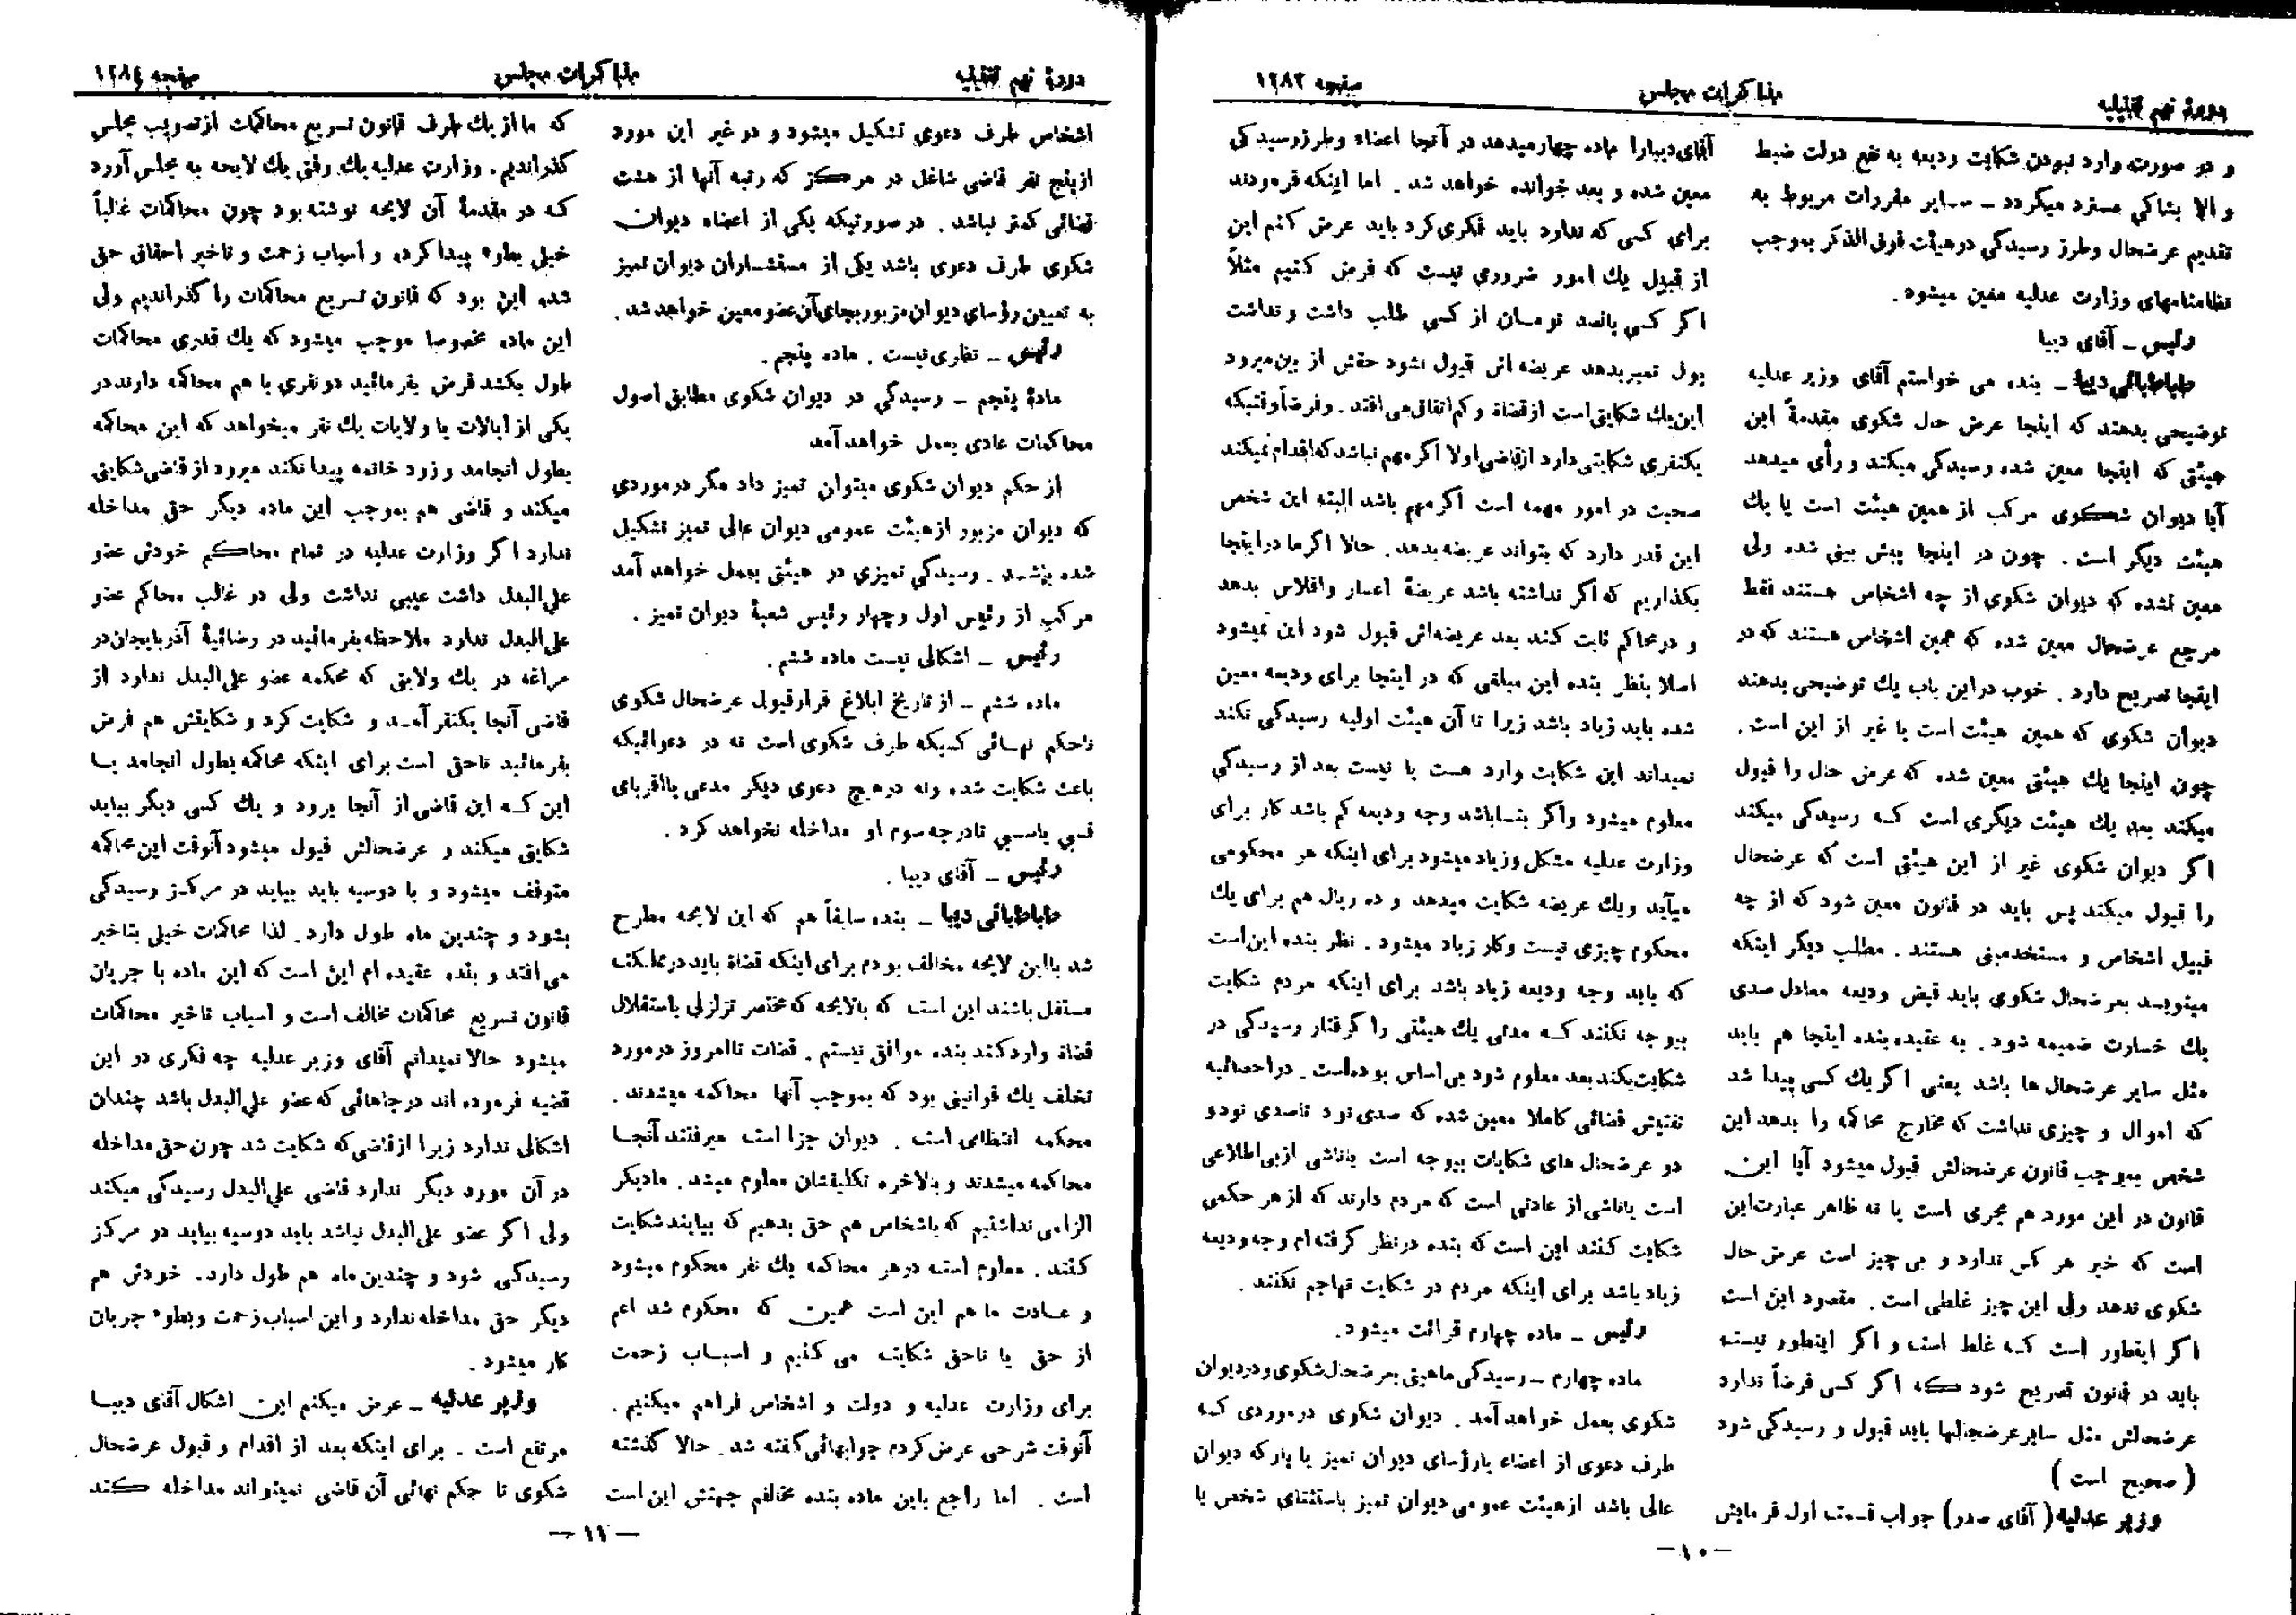 دورهٔ نهم تقنینیه
مذاکرات مجلس
صفحه ۱۲۸۳
و در صورت وارد نبودن شکایت ودیعه به نفع دولت ضبط
و الا بشاکی مسترد میگردد ـ سایر مقررات مربوط به
تقدیم عرضحال و طرز رسیدگی در هیئت فوق الذکر بموجب
نظامنامهای وزارت عدلیه معین میشود.
رئیس ـ آقای دیبا
طباطبائی دیبا ـ بنده می خواستم آقای وزیر عدلیه
توضیحی بدهند که اینجا عرض حال شکوی مقدمةً این
هیئتی که اینجا معین شده رسیدگی میکند و رأی میدهد
آیا دیوان شکوی مرکب از همین هیئت است یا یك
هیئت دیگر است . چون در اینجا پیش بینی شده ولی
معین نشده که دیوان شکوی از چه اشخاص هستند فقط
مرجع عرضحال معین شده که همین اشخاص هستند که در
اینجا تصریح دارد . خوب در این باب یك توضیحی بدهند
دیوان شکوی که همین هیئت است یا غیر از این است.
چون اینجا یك هیئتی معین شده که عرض حال را قبول
میکند بعد یك هیئت دیگری است که رسیدگی میکند
اگر دیوان شکوی غیر از این هیئتی است که عرضحال
را قبول میکند پس باید در قانون معین شود که از چه
قبیل اشخاص و مستخدمینی هستند . مطلب دیگر اینکه
مینویسد بعرضحال شکوی باید قبض ودیعه معادل صدی
یك خسارت ضمیمه شود . به عقیده بنده اینجا هم باید
مثل سایر عرضحال ها باشد یعنی اگر یك کسی پیدا شد
که اموال و چیزی نداشت که مخارج محاکمه را بدهد این
شخص بموجب قانون عرضحالش قبول میشود آیا این
قانون در این مورد هم مجری است یا نه ظاهر عبارت این
است که خیر هر کس ندارد و بی چیز است عرض حال
شکوی ندهد ولی این چیز غلطی است . مقصود این است
اگر اینطور است که غلط است و اگر اینطور نیست
باید در قانون تصریح شود که اگر کسی فرضاً ندارد
عرضحالش مثل سایر عرضحالها باید قبول و رسیدگی شود
( صحیح است )
وزیر عدلیه ( آقای صدر ) جواب قسمت اول فرمایش
آقای دیبا را ماده چهار میدهد در آنجا اعضاء و طرز رسیدگی
معین شده و بعد خوانده خواهد شد . اما اینکه فرمودند
برای کسی که ندارد باید فکری کرد باید عرض کنم این
از قبیل یك امور ضروری نیست که فرض کنیم مثلاً
اگر کسی پانصد تومان از کسی طلب داشت و نداشت
پول تمبر بدهد عریضه اش قبول نشود حقش از بین میرود
این یك شکایتی است از قضاة و کم اتفاق می افتد . و فرضاً وقتیکه
یکنفری شکایتی دارد از قاضی اولا اگر مهم نباشد که اقدام نمیکند
صحبت در امور مهمه است اگر مهم باشد البته این شخص
این قدر دارد که بتواند عریضه بدهد . حالا اگر ما در اینجا
بگذاریم که اگر نداشته باشد عریضهٔ اعسار و افلاس بدهد
و در محاکم ثابت کند بعد عریضه اش قبول شود این نمیشود
اصلا بنظر بنده این مبلغی که در اینجا برای ودیعه معین
شده باید زیاد باشد زیرا تا آن هیئت اولیه رسیدگی نکند
نمیداند این شکایت وارد هست یا نیست بعد از رسیدگی
معلوم میشود و اگر بنا باشد وجه ودیعه کم باشد کار برای
وزارت عدلیه مشکل و زیاد میشود برای اینکه هر محکومی
میآید و یك عریضه شکایت میدهد و ده ریال هم برای یك
محکوم چیزی نیست و کار زیاد میشود . نظر بنده این است
که باید وجه ودیعه زیاد باشد برای اینکه مردم شکایت
بیوجه نکنند که مدتی یك هیئتی را گرفتار رسیدگی در
شکایت بکند بعد معلوم شود بی اساس بوده است . در احصائیه
تفتیش قضائی کاملا معین شده که صدی نود تا صدی نود و
دو عرضحال های شکایات بیوجه است یا ناشی از بی اطلاعی
است یا ناشی از عادتی است که مردم دارند که از هر حکمی
شکایت کنند این است که بنده در نظر گرفته ام وجه ودیعه
زیاد باشد برای اینکه مردم در شکایت تهاجم نکنند .
رئیس ـ ماده چهارم قرائت میشود.
ماده چهارم ـ رسیدگی ماهیتی بعرضحال شکوی و در دیوان
شکوی بعمل خواهد آمد . دیوان شکوی در موردی که
طرف دعوی از اعضاء یا رؤسای دیوان تمیز یا پارکه دیوان
عالی باشد از هیئت عمومی دیوان تمیز باستثنای شخص یا
ـ ۱۰ ـ
دورهٔ نهم تقنینیه
مذاکرات مجلس
صفحه ۱۲۸۴
اشخاص طرف دعوی تشکیل میشود و در غیر این مورد
از پنج نفر قاضی شاغل در مرکز که رتبه آنها از هشت
قضائی کمتر نباشد . در صورتیکه یکی از اعضاء دیوان
شکوی طرف دعوی باشد یکی از مستشاران دیوان تمیز
به تعیین رؤسای دیوان مزبور بجای آن عضو معین خواهد شد .
رئیس ـ نظری نیست . ماده پنجم .
مادهٔ پنجم ـ رسیدگی در دیوان شکوی مطابق اصول
محاکمات عادی بعمل خواهد آمد
از حکم دیوان شکوی میتوان تمیز داد مگر در موردی
که دیوان مزبور از هیئت عمومی دیوان عالی تمیز تشکیل
شده باشد . رسیدگی تمیزی در هیئتی بعمل خواهد آمد
مرکب از رئیس اول و چهار رئیس شعبهٔ دیوان تمیز .
رئیس ـ اشکالی نیست ماده ششم .
ماده ششم ـ از تاریخ ابلاغ قرار قبول عرضحال شکوی
تا حکم نهائی کسیکه طرف شکوی است نه در دعوائیکه
باعث شکایت شده و نه در هیچ دعوی دیگر مدعی یا اقربای
نسبی یا سببی تا درجه سوم او مداخله نخواهد کرد .
رئیس ـ آقای دیبا .
طباطبائی دیبا ـ بنده سابقاً هم که این لایحه مطرح
شد با این لایحه مخالف بودم برای اینکه قضاة باید در مملکت
مستقل باشند این است که بالایحه که مختصر تزلزلی باستقلال
قضاة وارد کند بنده موافق نیستم . قضات تا امروز در مورد
تخلف یك قوانینی بود که بموجب آنها محاکمه میشدند .
محکمه انتظامی است . دیوان جزا است میرفتند آنجا
محاکمه میشدند و بالاخره تکلیفشان معلوم میشد . ما دیگر
الزامی نداشتیم که باشخاص هم حق بدهیم که بیایند شکایت
کنند . معلوم است در هر محاکمه یك نفر محکوم میشود
و عادت ما هم این است همین که محکوم شد اعم
از حق یا ناحق شکایت می کنیم و اسباب زحمت
برای وزارت عدلیه و دولت و اشخاص فراهم میکنیم .
آنوقت شرحی عرض کردم جوابهائی گفته شد . حالا گذشته
است . اما راجع باین ماده بنده مخالفم جهتش این است
که ما از یك طرف قانون تسریع محاکمات از تصویب مجلس
گذراندیم . وزارت عدلیه یك وقتی یك لایحه به مجلس آورد
که در مقدمهٔ آن لایحه نوشته بود چون محاکمات غالباً
خیلی بطوء پیدا کرده و اسباب زحمت و تاخیر احقاق حق
شده این بود که قانون تسریع محاکمات را گذراندیم ولی
این ماده مخصوصا موجب میشود که یك قدری محاکمات
طول بکشد فرض بفرمائید دو نفری با هم محاکمه دارند در
یکی از ایالات یا ولایات یك نفر میخواهد که این محاکمه
بطول انجامد و زود خاتمه پیدا نکند میرود از قاضی شکایتی
میکند و قاضی هم بموجب این ماده دیگر حق مداخله
ندارد اگر وزارت عدلیه در تمام محاکم خودش عضو
علی البدل داشت عیبی نداشت ولی در غالب محاکم عضو
علی البدل ندارد ملاحظه بفرمائید در رضائیهٔ آذربایجان در
مراغه در یك ولایتی که محکمه عضو علی البدل ندارد از
قاضی آنجا یکنفر آمد و شکایت کرد و شکایتش هم فرض
بفرمائید ناحق است برای اینکه محاکمه بطول انجامد یا
این که این قاضی از آنجا برود و یك کسی دیگر بیاید
شکایتی میکند و عرضحالش قبول میشود آنوقت این محاکمه
متوقف میشود و با دوسیه باید بیاید در مرکز رسیدگی
بشود و چندین ماه طول دارد . لذا محاکمات خیلی بتاخیر
می افتد و بنده عقیده ام این است که این ماده با جریان
قانون تسریع محاکمات مخالف است و اسباب تاخیر محاکمات
میشود حالا نمیدانم آقای وزیر عدلیه چه فکری در این
قضیه فرموده اند در جاهائی که عضو علی البدل باشد چندان
اشکالی ندارد زیرا از قاضی که شکایت شد چون حق مداخله
در آن مورد دیگر ندارد قاضی علی البدل رسیدگی میکند
ولی اگر عضو علی البدل نباشد باید دوسیه بیاید در مرکز
رسیدگی شود و چندین ماه هم طول دارد . خودش هم
دیگر حق مداخله ندارد و این اسباب زحمت و بطوء جریان
کار میشود .
وزیر عدلیه ـ عرض میکنم این اشکال آقای دیبا
مرتفع است . برای اینکه بعد از اقدام و قبول عرضحال
شکوی تا حکم نهائی آن قاضی نمیتواند مداخله کند
ـ ۱۱ ـ